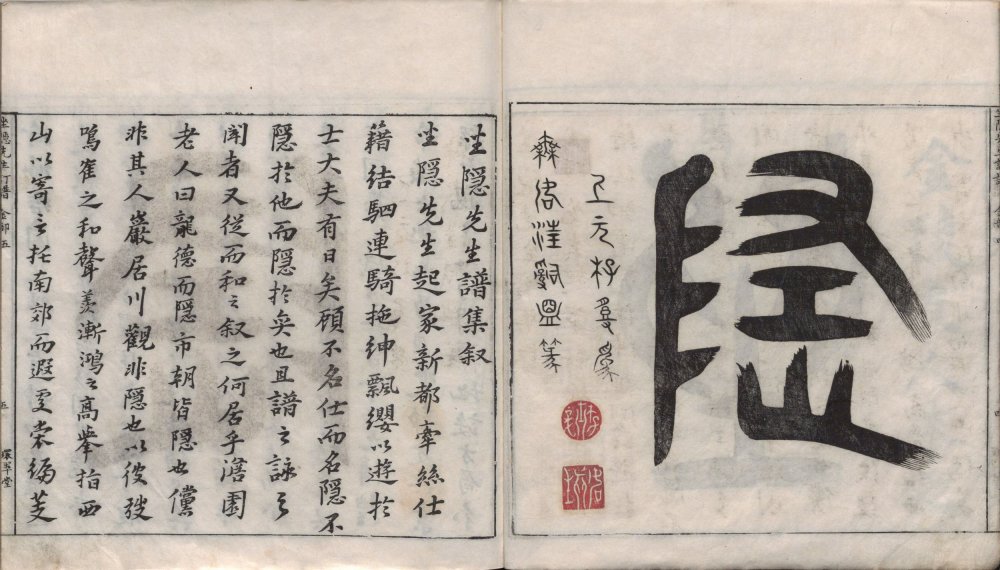 隱
坐隱先生譜集叙
坐隱先生起家新都牽絲仕
籍結駟連騎拖紳飄纓以遊於
士大夫有日矣顧不名仕而名隱不
隱於他而隱於奕也且譜之詠之
聞者又從而和之叙之何居乎澹園
老人曰龍德而隱市朝皆隱也儻
非其人巖居川觀非隱也以彼
鳴隺之和聲羨漸鴻之高舉指西
山以寄言托南郊而遐
五
環翠堂